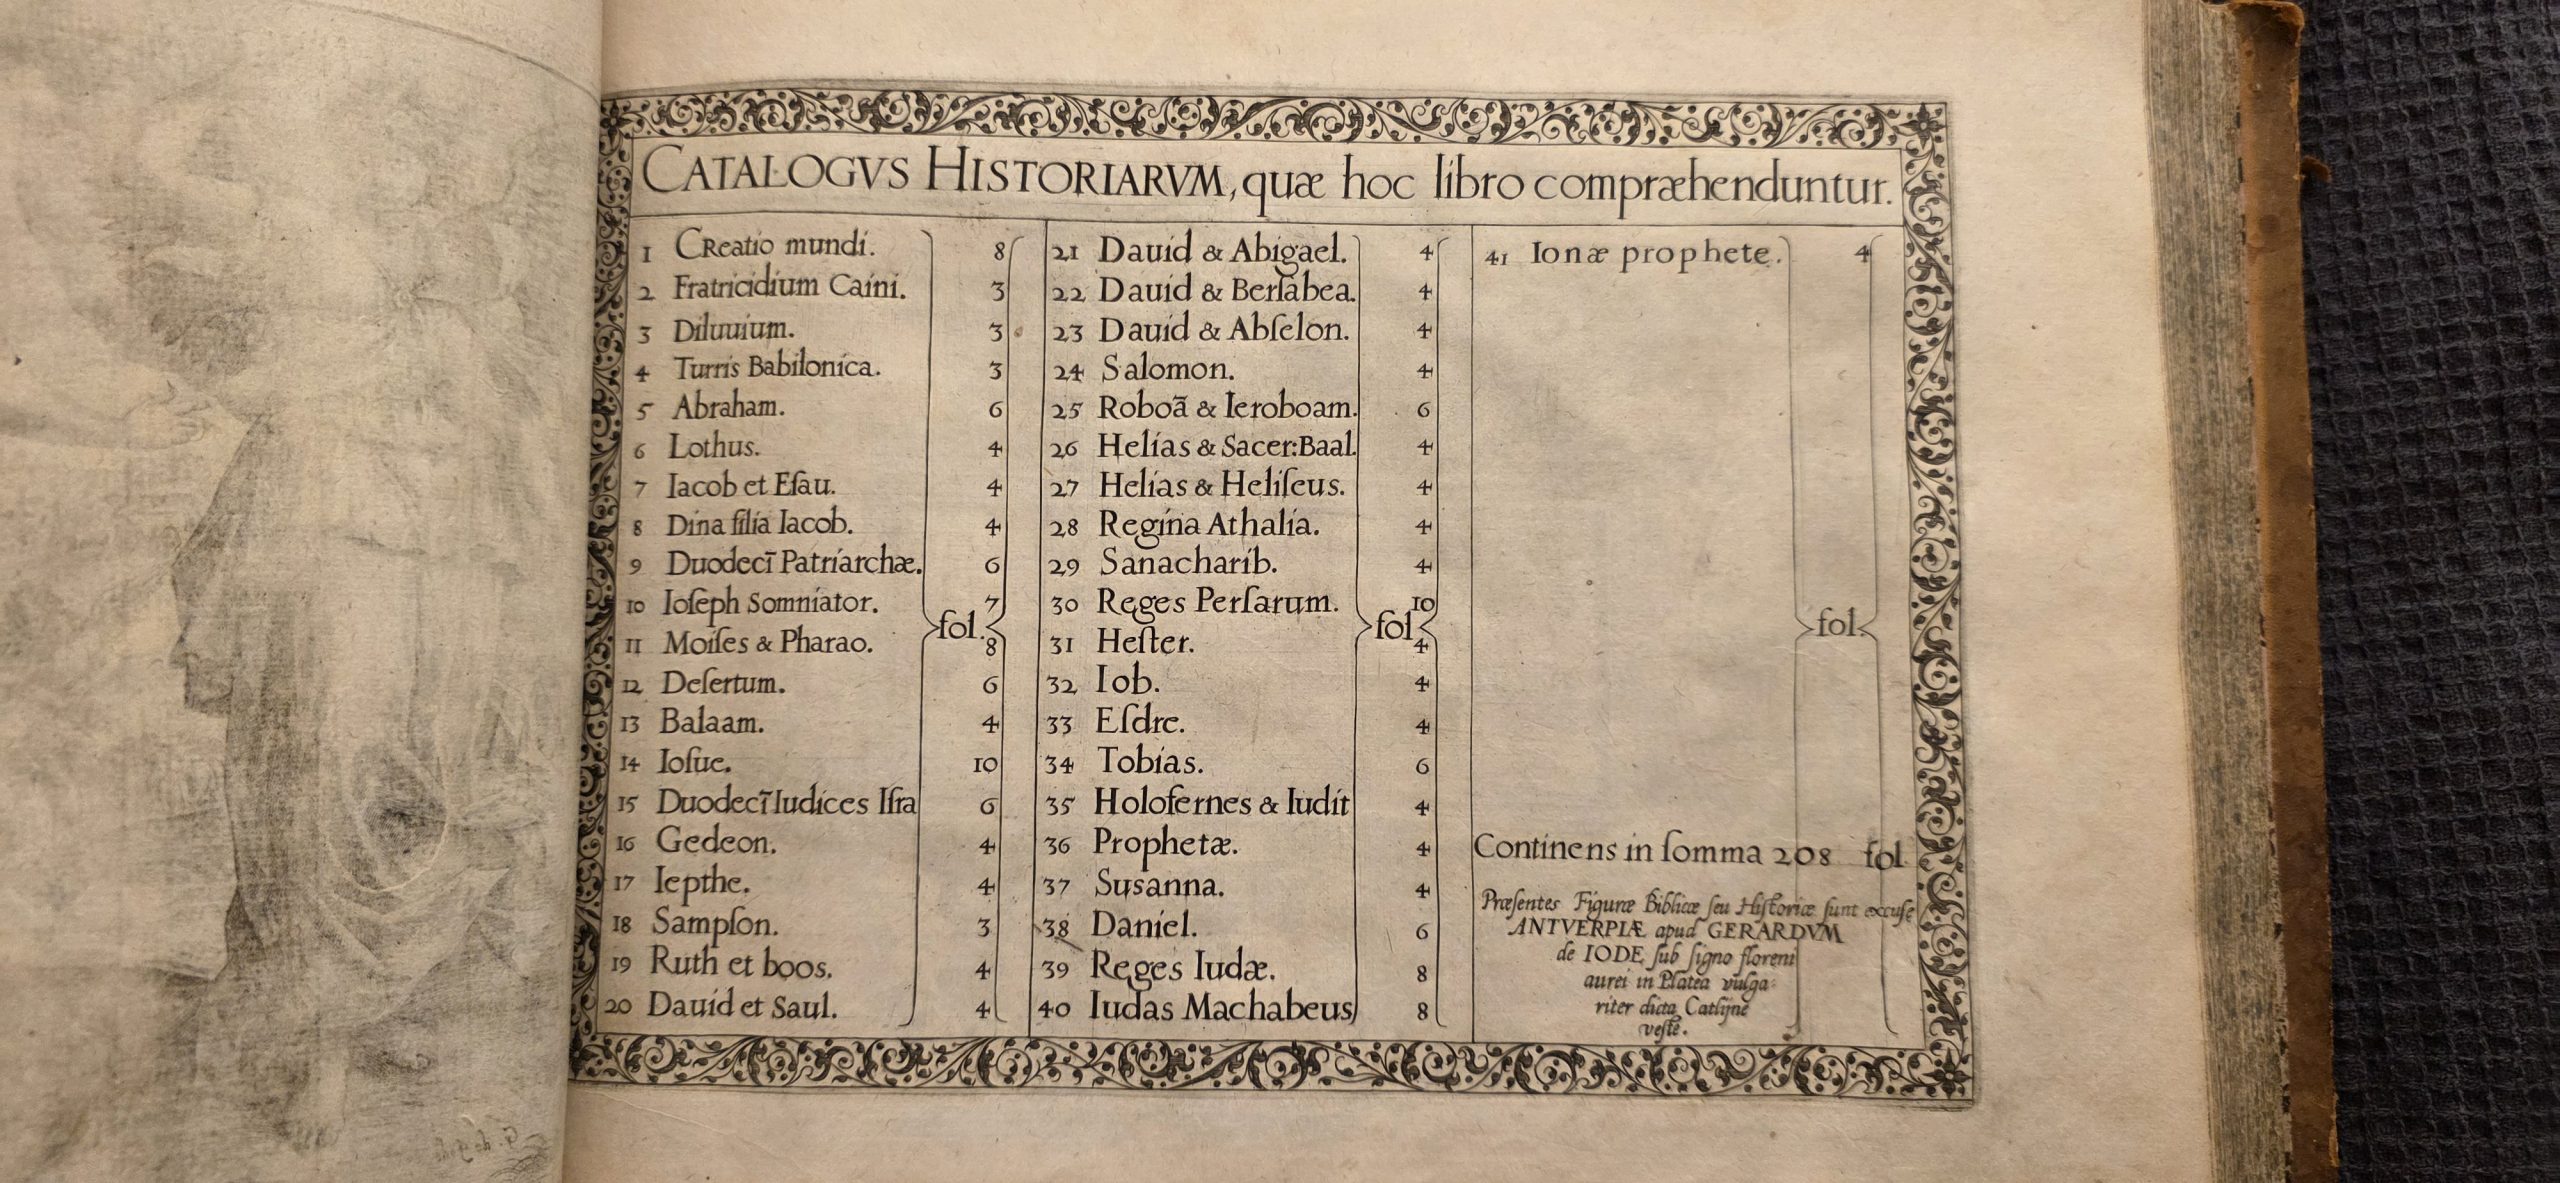 CATALOGVS HISTORIARVM, quæ hoc libro compræhenduntur.
1 CReatio mundi. 8
2 Fratricidium Caini. 3
3 Diluuium. 3
4 Turris Babilonica. 3
5 Abraham. 6
6 Lothus. 4
7 Iacob et Eſau. 4
8 Dina filia Iacob. 4
9 Duodecī Patriarchæ. 6
10 Ioſeph Somniator. 7
fol.
11 Moiſes & Pharao. 8
12 Deſertum. 6
13 Balaam. 4
14 Ioſue. 10
15 Duodecī Iudices Iſra 6
16 Gedeon. 4
17 Iepthe. 4
18 Sampſon. 3
19 Ruth et boos. 4
20 Dauid et Saul. 4
21 Dauid & Abigael. 4
22 Dauid & Berſabea. 4
23 Dauid & Abſelon. 4
24 Salomon. 4
25 Roboā & Ieroboam. 6
26 Helias & Sacer:Baal. 4
27 Helias & Heliſeus. 4
28 Regina Athalia. 4
29 Sanacharib. 4
30 Reges Perſarum. 10
fol
31 Heſter. 4
32 Iob. 4
33 Eſdre. 4
34 Tobias. 6
35 Holofernes & Iudit 4
36 Prophetæ. 4
37 Susanna. 4
38 Daniel. 6
39 Reges Iudæ. 8
40 Iudas Machabeus 8
41 Ionæ prophete. 4
fol
Continens in ſomma 208 fol
Præſentes Figuræ Biblicæ ſeu Hiſtoriæ ſunt excuſę
ANTVERPIÆ apud GERARDVM
de IODE ſub ſigno floreni
aurei in Platea vulga-
riter dicta Catlijne
veſte.